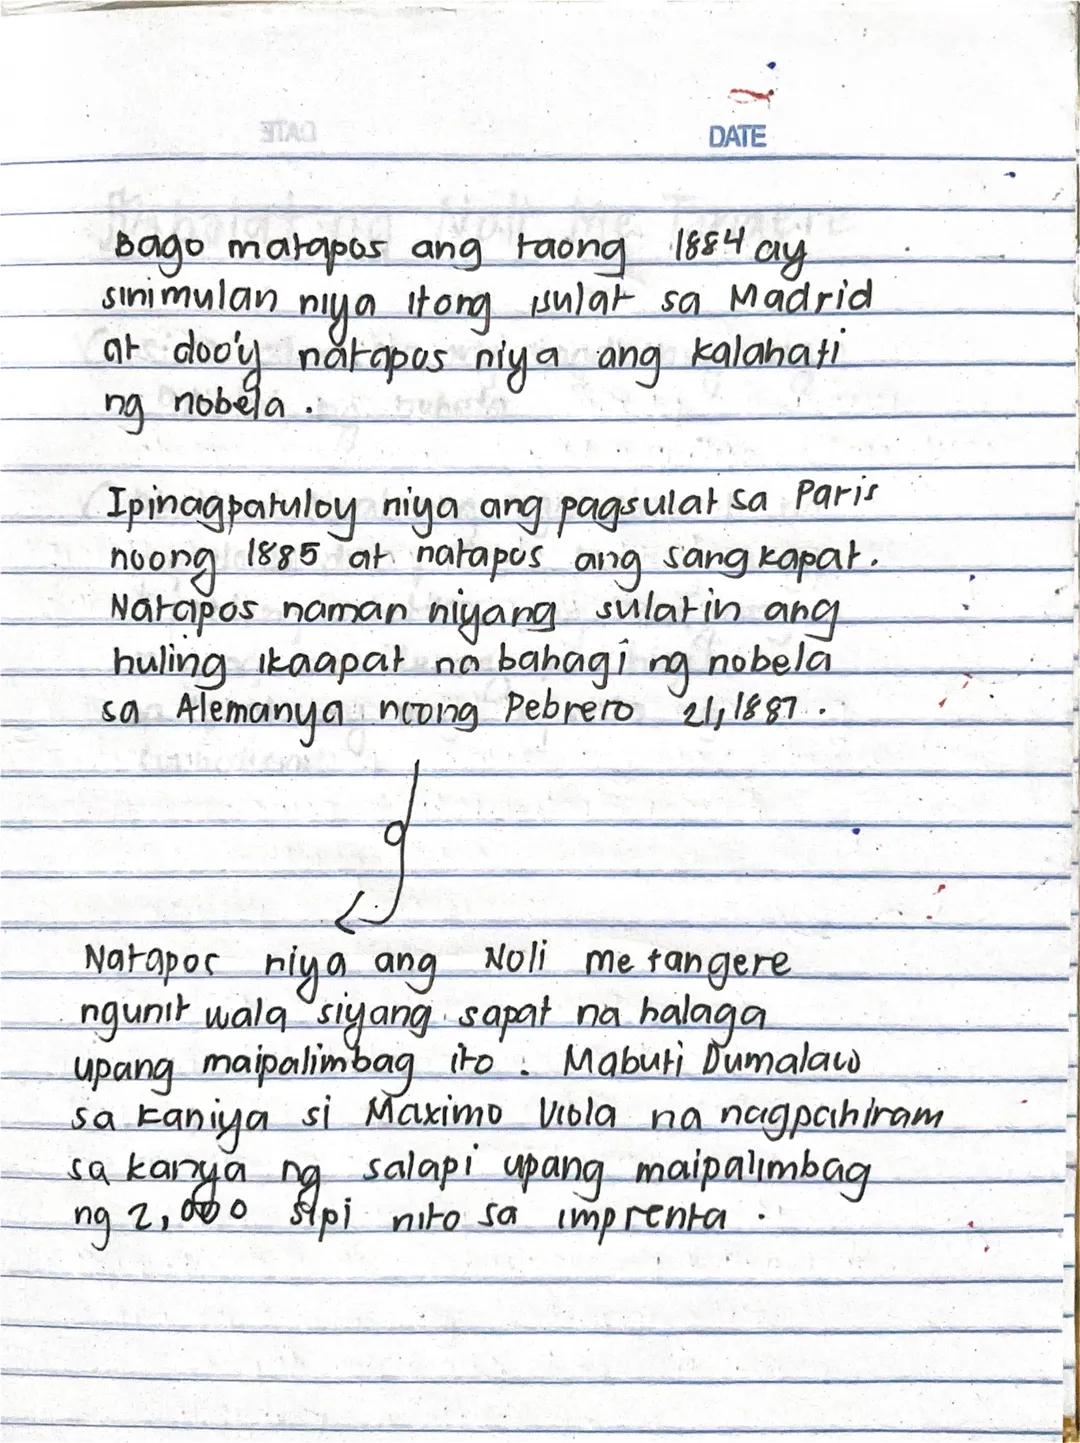 DATE
Bago matapos ang taong 1884 ay
sinimulan niya itong isulat sa Madrid
at doo'y natapos niya ang kalahati
ng nobela.
Ipinagpatuloy niya ang pagsulat sa Paris
noong 1885 at natapos ang sangkapat.
Natapos naman niyang sulatin ang
huling ikaapat na bahagi ng nobela
sa Alemanya noong Pebrero 21, 1887.
Natapos niya ang Noli me tangere
ngunit wala siyang sapat na halaga
upang maipalimbag ito. Mabuti Dumalaw
sa kaniya si Maximo Viola na nagpahiram
sa kanya ng salapi upang maipalimbag
ng 2,000 sipi nito sa imprenta.